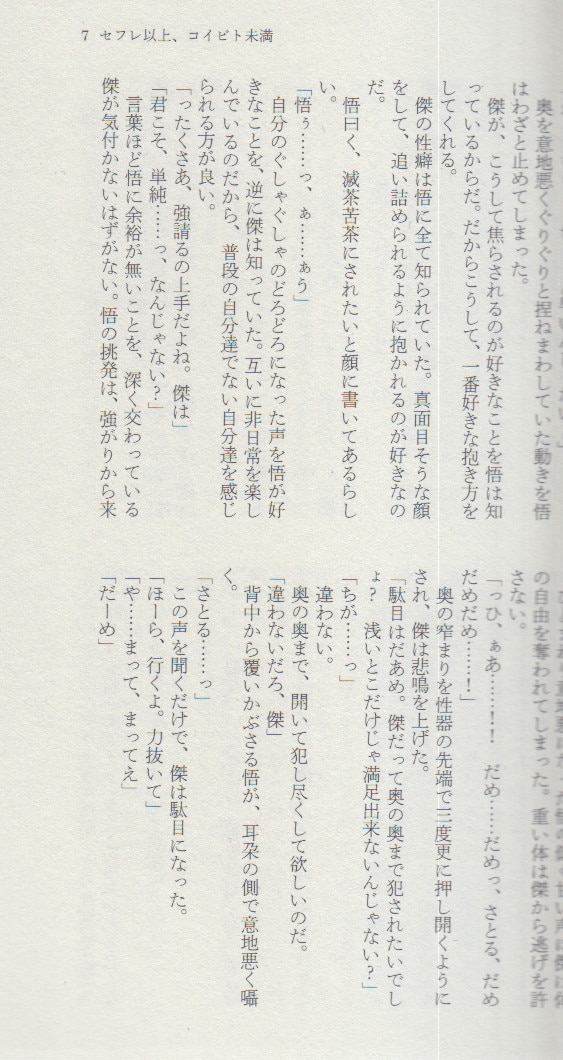 7 セフレ以上、コイビト未満
奥を意地悪くぐりぐりと捏ねまわしていた動きを悟
はわざと止めてしまった。
傑が、こうして焦らされるのが好きなことを悟は知
っているからだ。だからこうして、一番好きな抱き方を
してくれる。
傑の性癖は悟に全て知られていた。真面目そうな顔
をして、追い詰められるように抱かれるのが好きなの
だ。
悟曰く、滅茶苦茶にされたいと顔に書いてあるらし
い。
「悟ぅ……っ、ぁ……ぁう」
自分のぐしゃぐしゃのどろどろになった声を悟が好
きなことを、逆に傑は知っていた。互いに非日常を楽し
んでいるのだから、普段の自分達でない自分達を感じ
られる方が良い。
「ったくさあ、強請るの上手だよね。傑は」
「君こそ、単純……っ、なんじゃない?」
言葉ほど悟に余裕が無いことを、深く交わっている
傑が気付かないはずがない。悟の挑発は、強がりから来
の自由を奪われてしまった。重い体は傑から逃げを許
さない。
「っひ、ぁあ……!! だめ……だめっ、さとる、だめ
だめだめ……!」
奥の窄まりを性器の先端で三度更に押し開くように
され、傑は悲鳴を上げた。
「駄目はだあめ。傑だって奥の奥まで犯されたいでし
ょ? 浅いとこだけじゃ満足出来ないんじゃない?」
「ちが……っ」
違わない。
奥の奥まで、開いて犯し尽くして欲しいのだ。
「違わないだろ、傑」
背中から覆いかぶさる悟が、耳朶の側で意地悪く囁
く。
「さとる……っ」
この声を聞くだけで、傑は駄目になった。
「ほーら、行くよ。力抜いて」
「や……まって、まってえ」
「だーめ」